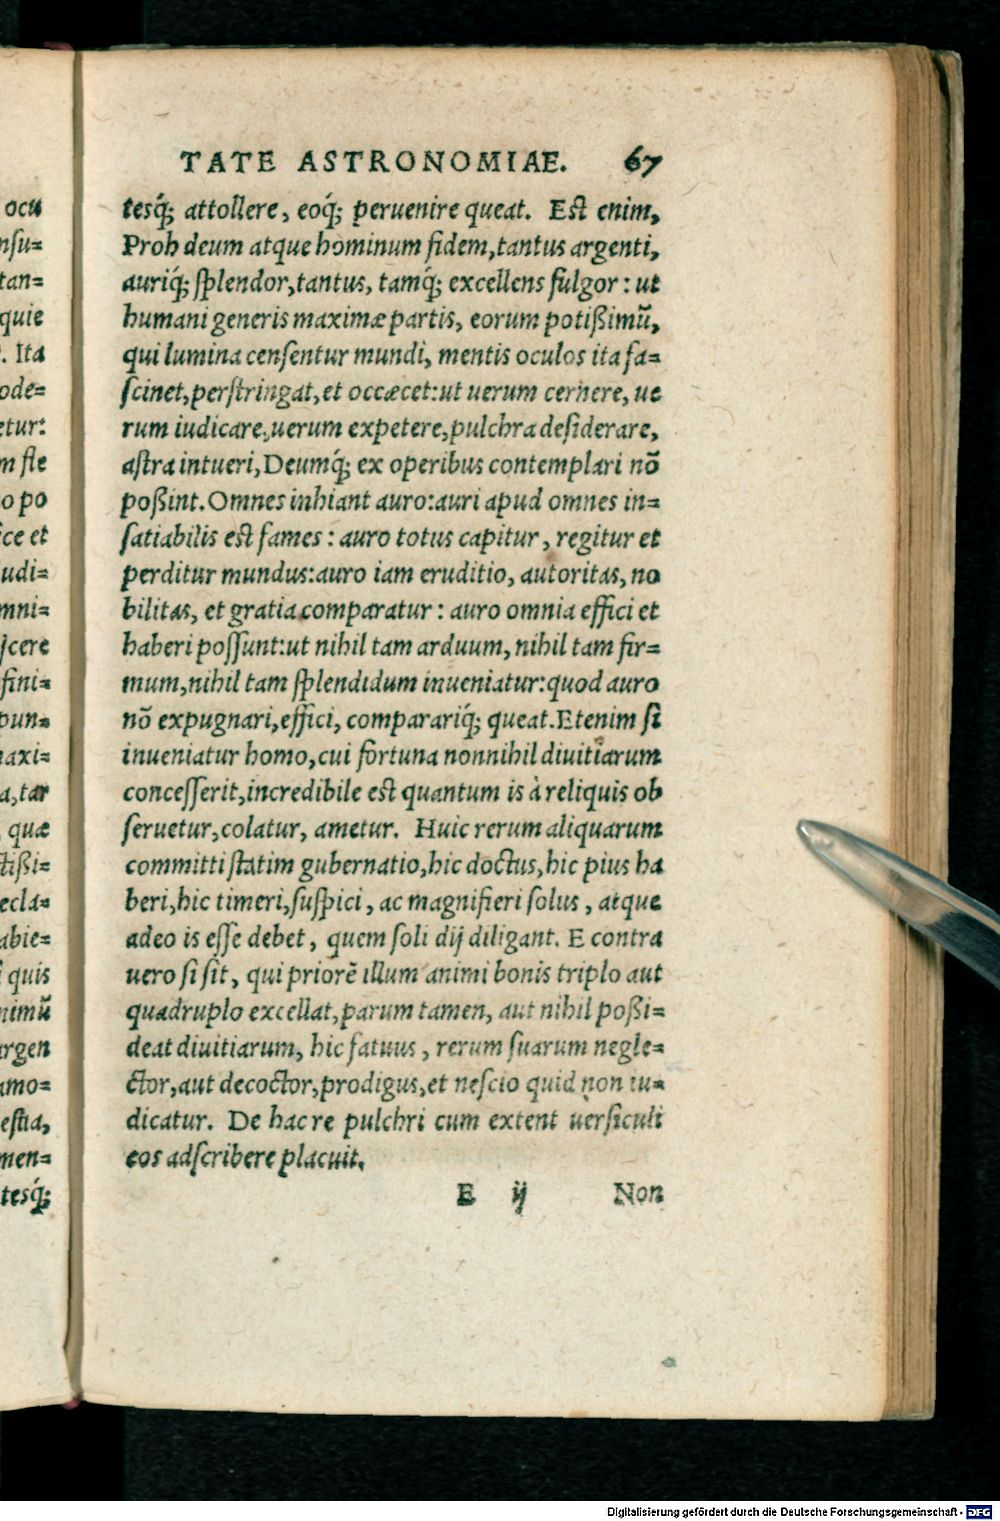 TATE ASTRONOMIAE. 67
tesq́; attollere, eoq́; peruenire queat. Est enim,
Proh deum atque hominum fidem, tantus argenti,
auriq́; splendor, tantus, tamq́; excellens fulgor : ut
humani generis maximæ partis, eorum potißimũ,
qui lumina censentur mundi, mentis oculos ita fa=
scinet, perstringat, et occæcet: ut uerum cernere, ue
rum iudicare, uerum expetere, pulchra desiderare,
astra intueri, Deumq́; ex operibus contemplari nõ
poßint. Omnes inhiant auro: auri apud omnes in=
satiabilis est fames : auro totus capitur, regitur et
perditur mundus: auro iam eruditio, autoritas, no
bilitas, et gratia comparatur : auro omnia effici et
haberi possunt: ut nihil tam arduum, nihil tam fir=
mum, nihil tam splendidum inueniatur: quod auro
nõ expugnari, effici, comparariq́; queat. Etenim si
inueniatur homo, cui fortuna nonnihil diuitiarum
concesserit, incredibile est quantum is à reliquis ob
seruetur, colatur, ametur. Huic rerum aliquarum
committi statim gubernatio, hic doctus, hic pius ha
beri, hic timeri, suspici, ac magnifieri solus, atque
adeo is esse debet, quem soli dij diligant. E contra
uero si sit, qui priorẽ illum animi bonis triplo aut
quadruplo excellat, parum tamen, aut nihil poßi=
deat diuitiarum, hic fatuus, rerum suarum negle=
ctor, aut decoctor, prodigus, et nescio quid non iu=
dicatur. De hac re pulchri cum extent uersiculi
eos adscribere placuit.
E ij Non
ocu
nsu=
tan=
quie
. Ita
ode=
etur:
m fle
o po
ice et
udi=
mni=
jcere
fini=
pun=
naxi=
a, tar
quæ
tißi=
ecla=
abie=
quis
nimũ
rgen
amo=
estia,
men=
tesq́;
Digitalisierung gefördert durch die Deutsche Forschungsgemeinschaft - DFG